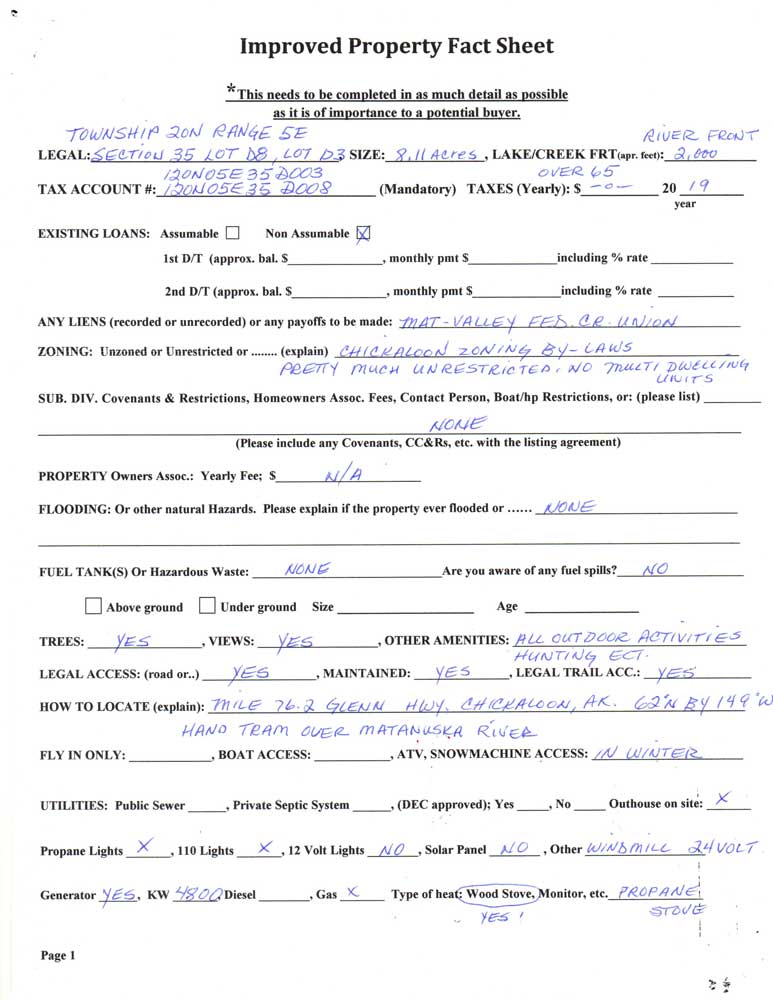 Improved Property Fact Sheet
*This needs to be completed in as much detail as possible
as it is of importance to a potential buyer.
TOWNSHIP 20N RANGE 5E RIVER FRONT
LEGAL: SECTION 35 LOT D8, LOT D3 SIZE: 8.11 Acres, LAKE/CREEK FRT(apr. feet): 2,000
120N05E35D003 OVER 65
TAX ACCOUNT #: 120N05E35D008 (Mandatory) TAXES (Yearly): $ -0- 20 19
year
EXISTING LOANS: Assumable ☐ Non Assumable ☒
1st D/T (approx. bal. $______, monthly pmt $______including % rate ______
2nd D/T (approx. bal. $______, monthly pmt $______including % rate ______
ANY LIENS (recorded or unrecorded) or any payoffs to be made: MAT-VALLEY FED. CR. UNION
ZONING: Unzoned or Unrestricted or ........ (explain) CHICKALOON ZONING BY-LAWS
PRETTY MUCH UNRESTRICTED, NO MULTI DWELLING
UNITS
SUB. DIV. Covenants & Restrictions, Homeowners Assoc. Fees, Contact Person, Boat/hp Restrictions, or: (please list) ______
NONE
(Please include any Covenants, CC&Rs, etc. with the listing agreement)
PROPERTY Owners Assoc.: Yearly Fee; $ N/A
FLOODING: Or other natural Hazards. Please explain if the property ever flooded or ...... NONE
FUEL TANK(S) Or Hazardous Waste: NONE Are you aware of any fuel spills? NO
☐ Above ground ☐ Under ground Size ______ Age ______
TREES: YES, VIEWS: YES, OTHER AMENITIES: ALL OUTDOOR ACTIVITIES
HUNTING ECT.
LEGAL ACCESS: (road or..) YES, MAINTAINED: YES, LEGAL TRAIL ACC.: YES
HOW TO LOCATE (explain): MILE 76.2 GLENN HWY. CHICKALOON, AK. 62°N BY 149°W
HAND TRAM OVER MATANUSKA RIVER
FLY IN ONLY: ______, BOAT ACCESS: ______, ATV, SNOWMACHINE ACCESS: IN WINTER
UTILITIES: Public Sewer ______, Private Septic System ______, (DEC approved); Yes _____, No _____ Outhouse on site: X
Propane Lights X, 110 Lights X, 12 Volt Lights NO, Solar Panel NO, Other WINDMILL 24 VOLT
Generator YES, KW 4800, Diesel ______, Gas X Type of heat: Wood Stove, Monitor, etc. PROPANE
YES! STOVE
Page 1